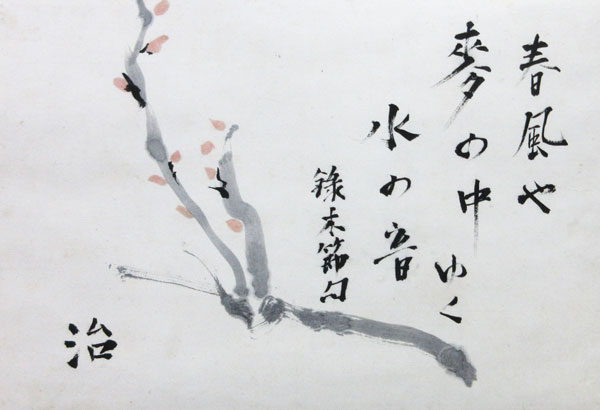 春風や
麥の中ゆく
水の音
錄木句
治